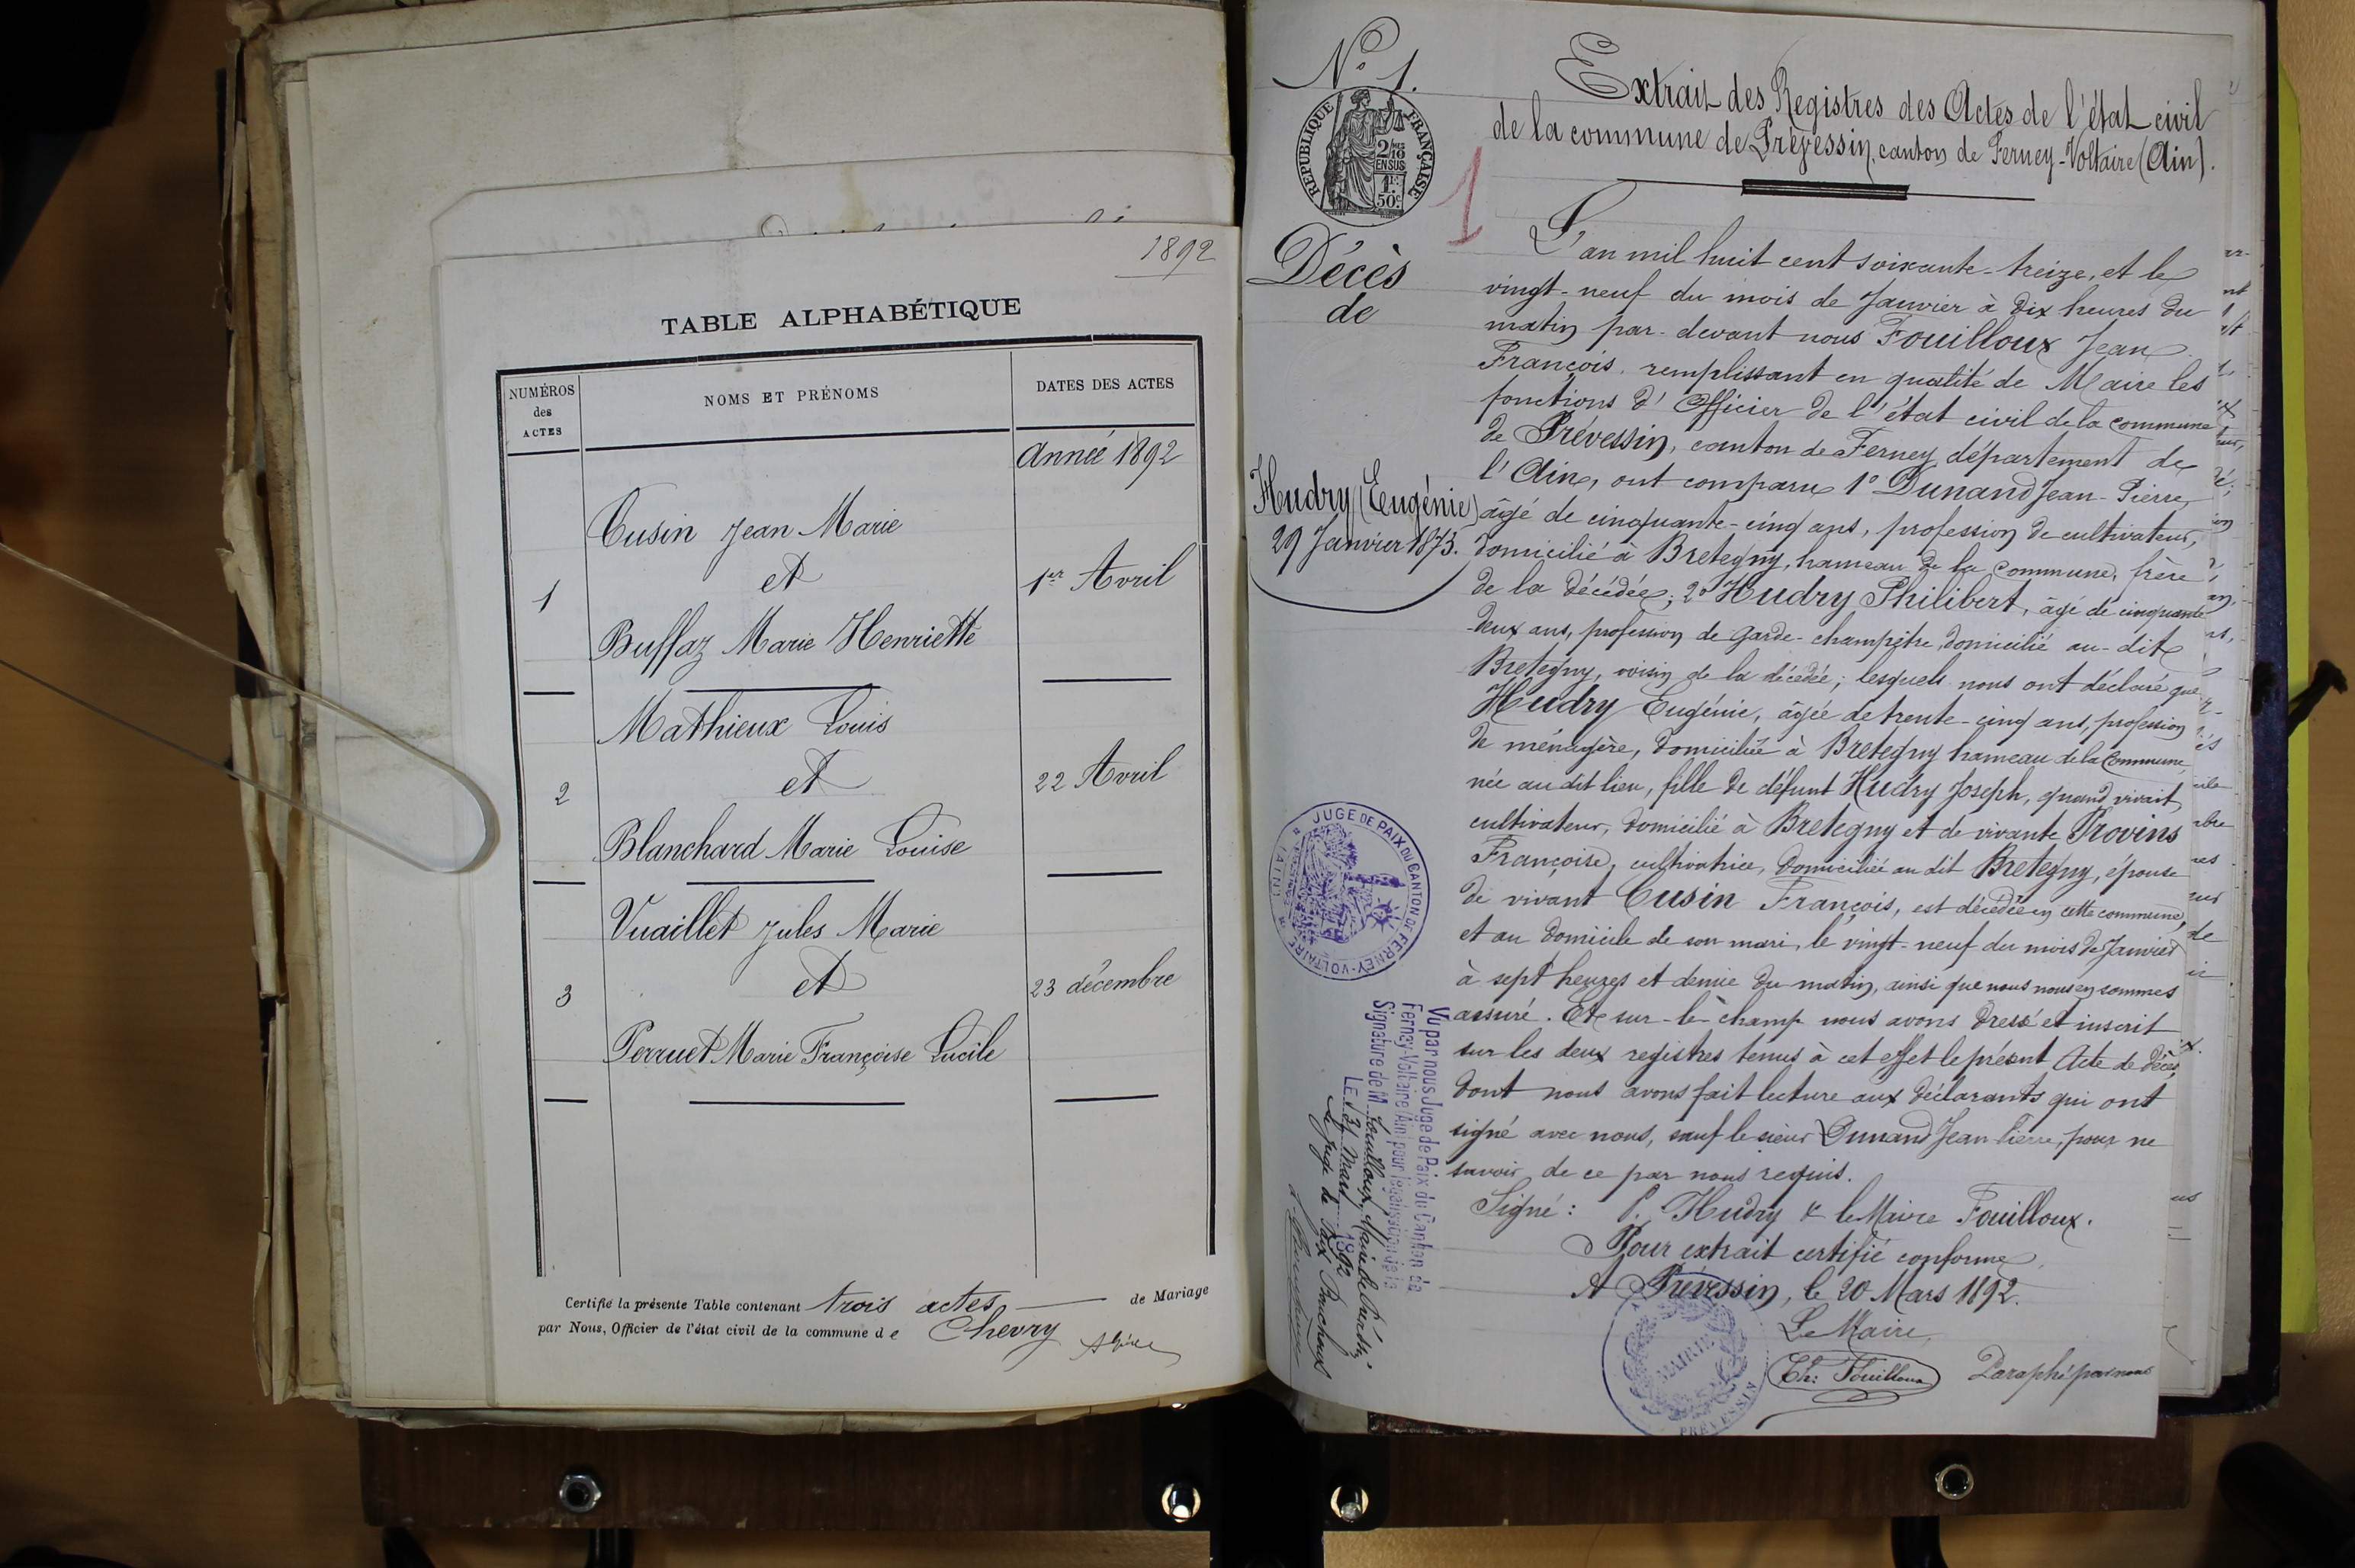 1892
TABLE ALPHABÉTIQUE
NUMÉROS des ACTES
NOMS ET PRÉNOMS
DATES DES ACTES
Année 1892
Cusin Jean Marie
et
1
1er Avril
Buffaz Marie Henriette
Mathieux Louis
et
2
22 Avril
Blanchard Marie Louise
Vuaillet Jules Marie
et
3
23 décembre
Perruet Marie Françoise Lucile
Certifié la présente Table contenant trois actes de Mariage
par Nous, Officier de l'état civil de la commune de Chevry
No 1.
RÉPUBLIQUE FRANÇAISE
2/10 EN SUS
1F 50c
1
Extrait des Registres des Actes de l'état civil
de la commune de Prévessin, canton de Ferney-Voltaire (Ain).
Décès
de
Hudry (Eugénie)
29 Janvier 1873.
L'an mil huit cent soixante-treize, et le
vingt-neuf du mois de Janvier à dix heures du
matin par-devant nous Fouilloux Jean
François, remplissant en qualité de Maire les
fonctions d'Officier de l'état civil de la commune
de Prévessin, canton de Ferney, département de
l'Ain, ont comparu 1° Dunand Jean-Pierre,
âgé de cinquante-cinq ans, profession de cultivateur,
domicilié à Bretegny, hameau de la commune, frère
de la décédée; 2° Hudry Philibert, âgé de cinquante
deux ans, profession de garde-champêtre, domicilié au-dit
Bretegny, voisin de la décédée; lesquels nous ont déclaré que
Hudry Eugénie, âgée de trente-cinq ans, profession
de ménagère, domiciliée à Bretegny hameau de la Commune,
née au dit lieu, fille de défunt Hudry Joseph, quand vivait,
cultivateur, domicilié à Bretegny et de vivante Provins
Françoise, cultivatrice, domiciliée au dit Bretegny, épouse
de vivant Cusin François, est décédée en cette commune,
et au domicile de son mari, le vingt-neuf du mois de Janvier
à sept heures et demie du matin, ainsi que nous nous en sommes
assuré. Et sur-le-champ nous avons dressé et inscrit
sur les deux registres tenus à cet effet le présent Acte de décès,
dont nous avons fait lecture aux déclarants qui ont
signé avec nous, sauf le sieur Dunand Jean-Pierre, pour ne
savoir de ce par nous requis.
Signé: P. Hudry & le Maire Fouilloux.
Pour extrait certifié conforme
A Prévessin, le 20 Mars 1892.
Le Maire,
Ch: Fouilloux
Paraphé par nous
MAIRIE
PREVESSIN
JUGE DE PAIX DU CANTON DE FERNEY-VOLTAIRE (AIN)
Vu par nous Juge de Paix du Canton de
Ferney-Voltaire (Ain) pour légalisation de la
Signature de M Fouilloux, Maire de Prévessin
LE 31 Mars 1892
Le Juge de Paix